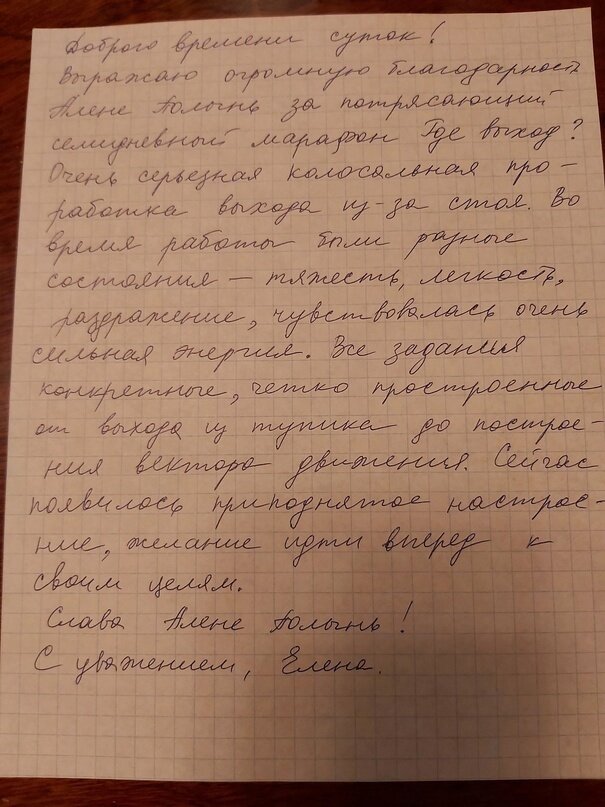 Доброго времени суток!
Выражаю огромную благодарность
Алене Полынь за потрясающий
семидневный марафон Где выход?
Очень серьезная колосальная про-
работка выхода из-за стоя. Во
время работы были разные
состояния – тяжесть, легкость,
раздражение, чувствовалась очень
сильная энергия. Все задания
конкретные, четко простроенные
от выхода из тупика до построе-
ния вектора движения. Сейчас
появилось приподнятое настрое-
ние, желание идти вперед к
своим целям.
Слава Алене Полынь!
С уважением, Елена.